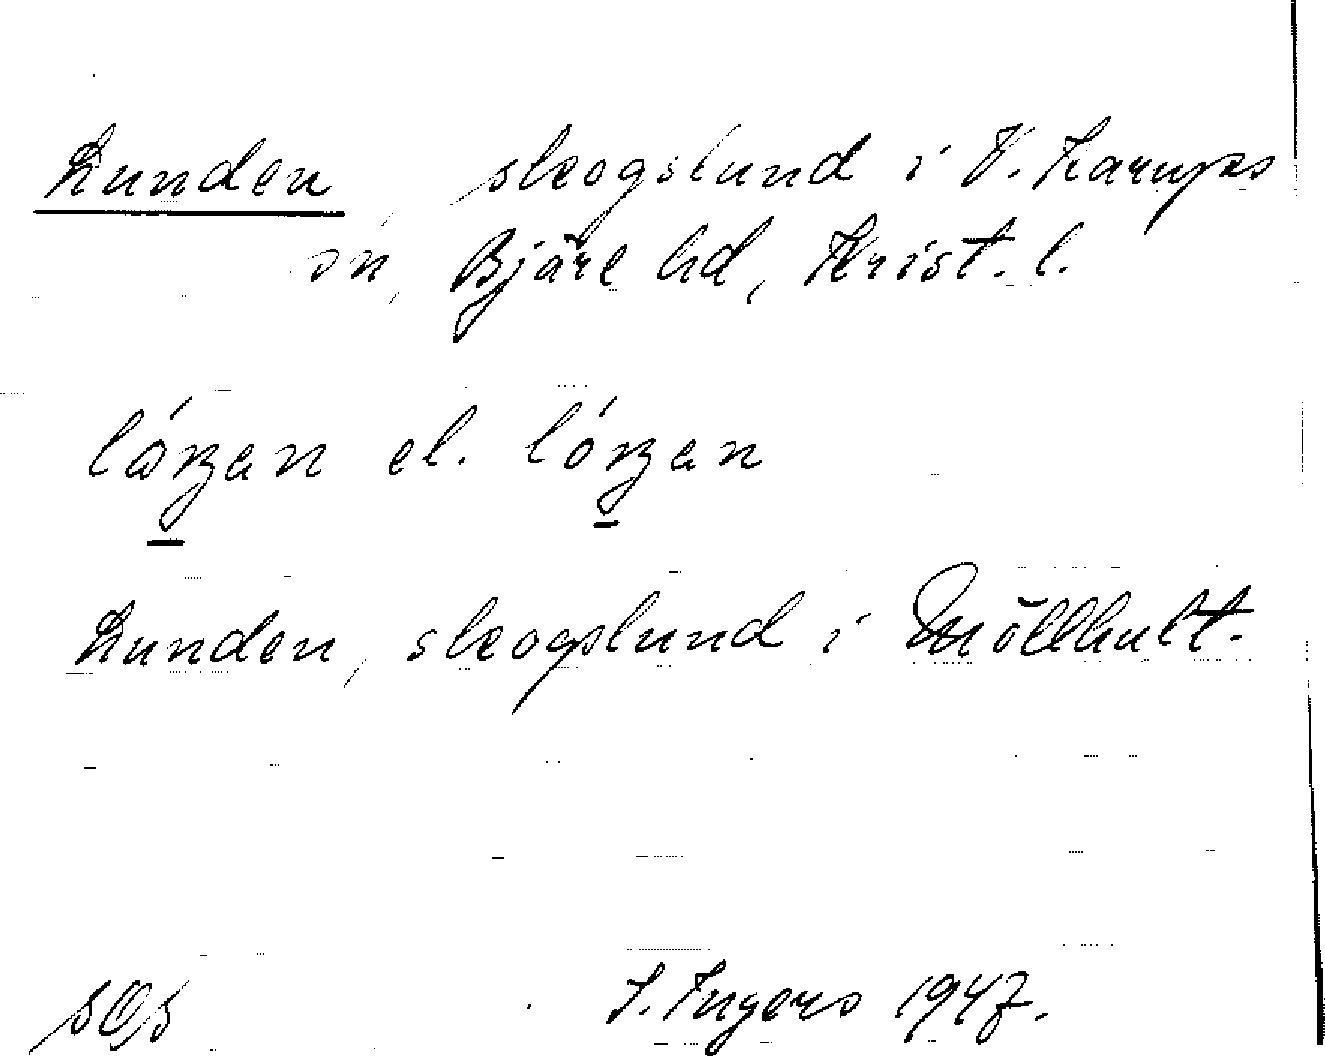 Lunden skogslund i V. Karups
sn, Bjäre hd, Krist. l.
el.
Lunden, skogslund i Möllhult.
I. Ingers 1947.